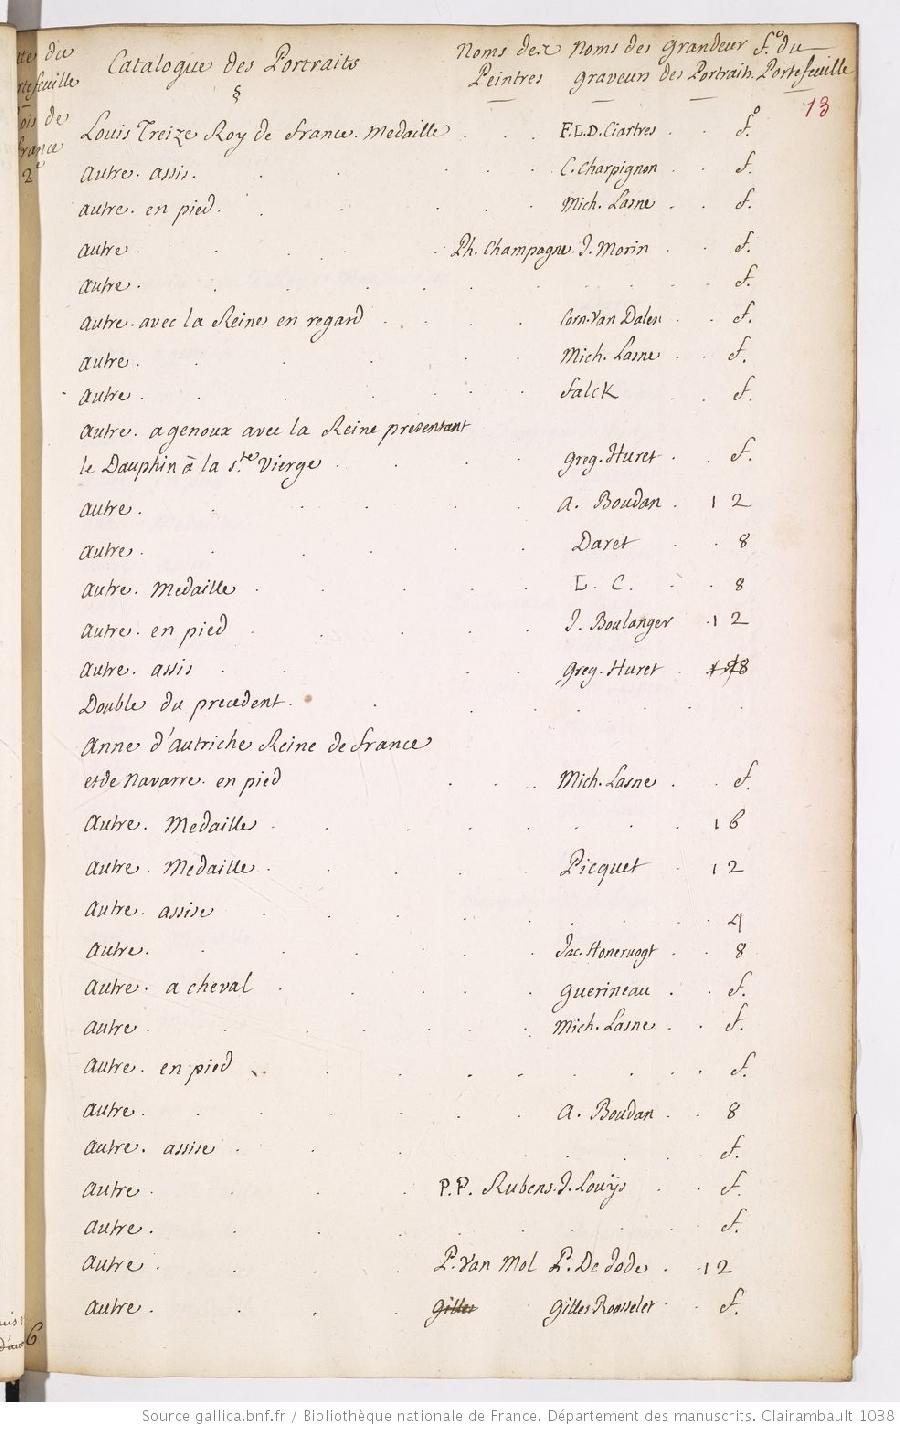 Catalogue des Portraits Noms des Noms des grandeur f.o du
§ Peintres graveurs des Portraits. Portefeuille
13
Louis Treize Roy de france. Medaille F.L.D. Ciartres f.o
autre. assis. C. Charpignon f.
autre. en pied. Mich. Lasne f.
autre Ph. Champagne J. Morin f.
autre. f.
autre. avec la Reine en regard Corn. Van Dalen f.
autre. Mich. Lasne f.
autre. falck f.
autre. a genoux avec la Reine presentant
le Dauphin à la s.te Vierge greg. Huret f.
autre. A. Boudan 12
autre. Daret 8
autre. Medaille L. C. 8
autre. en pied J. Boulanger 12
autre. assis greg. Huret 8
Double du precedent.
Anne d'autriche Reine de france
et de Navarre. en pied Mich. Lasne f.
autre. Medaille 16
autre. Medaille Picquet 12
autre. assise 4
autre. Jac. Honervogt 8
autre. a cheval guerineau f.
autre Mich. Lasne f.
autre. en pied f.
autre. A. Boudan 8
autre. assise f.
autre. P.P. Rubens. J. Louÿs f.
autre. f.
autre P. Van Mol P. De Jode 12
autre. gilles gilles Rousselet f.
6
Source gallica.bnf.fr / Bibliothèque nationale de France. Département des manuscrits. Clairambault 1038